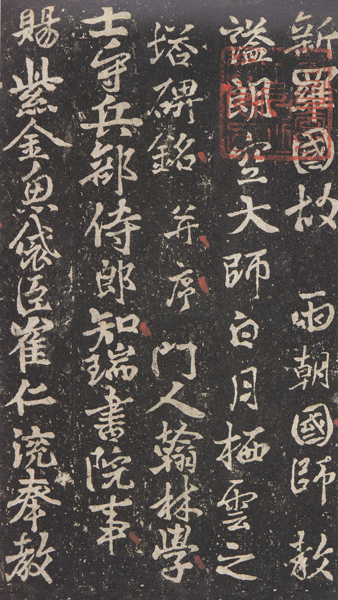 新羅國故 兩朝國師教
謚朗空大師白月栖雲之
塔碑銘 并序 門人翰林學
士守兵部侍郎知瑞書院事
賜紫金魚袋臣崔仁渷奉教